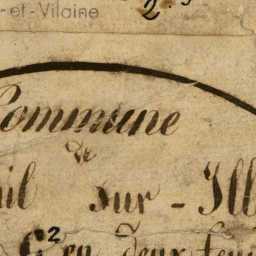 -et-Vilaine
2
Commune
de
il sur - Ill
C² en deux feui